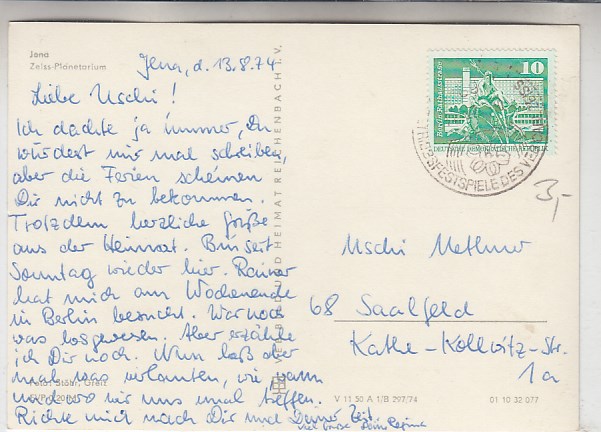 Jena
Zeiss-Planetarium
Jena, d. 13.8.74
Liebe Uschi!
Ich dachte ja immer, Du
würdest mir mal schreiben,
aber die Ferien scheinen
Dir nicht zu bekommen.
Trotzdem herzliche Grüße
aus der Heimat. Bin seit
Sonntag wieder hier. Rainer
hat mich am Wochenende
in Berlin besucht. War noch
was losgewesen. Aber erzähle
ich Dir noch. Nun laß aber
mal was verlauten, wie, wann
und wo wir uns mal treffen.
Richte mich nach Dir und Deiner Zeit.
Foto: Stöhr, Greiz
UND HEIMAT REICHENBACH i. V.
V 11 50 A 1/B 297/74
01 10 32 077
10
Berlin, Rathausstrasse
DEUTSCHE DEMOKRATISCHE REPUBLIK
FESTSPIELE DES
3,-
Uschi Methner
68 Saalfeld
Käthe-Kollwitz-Str.
1a